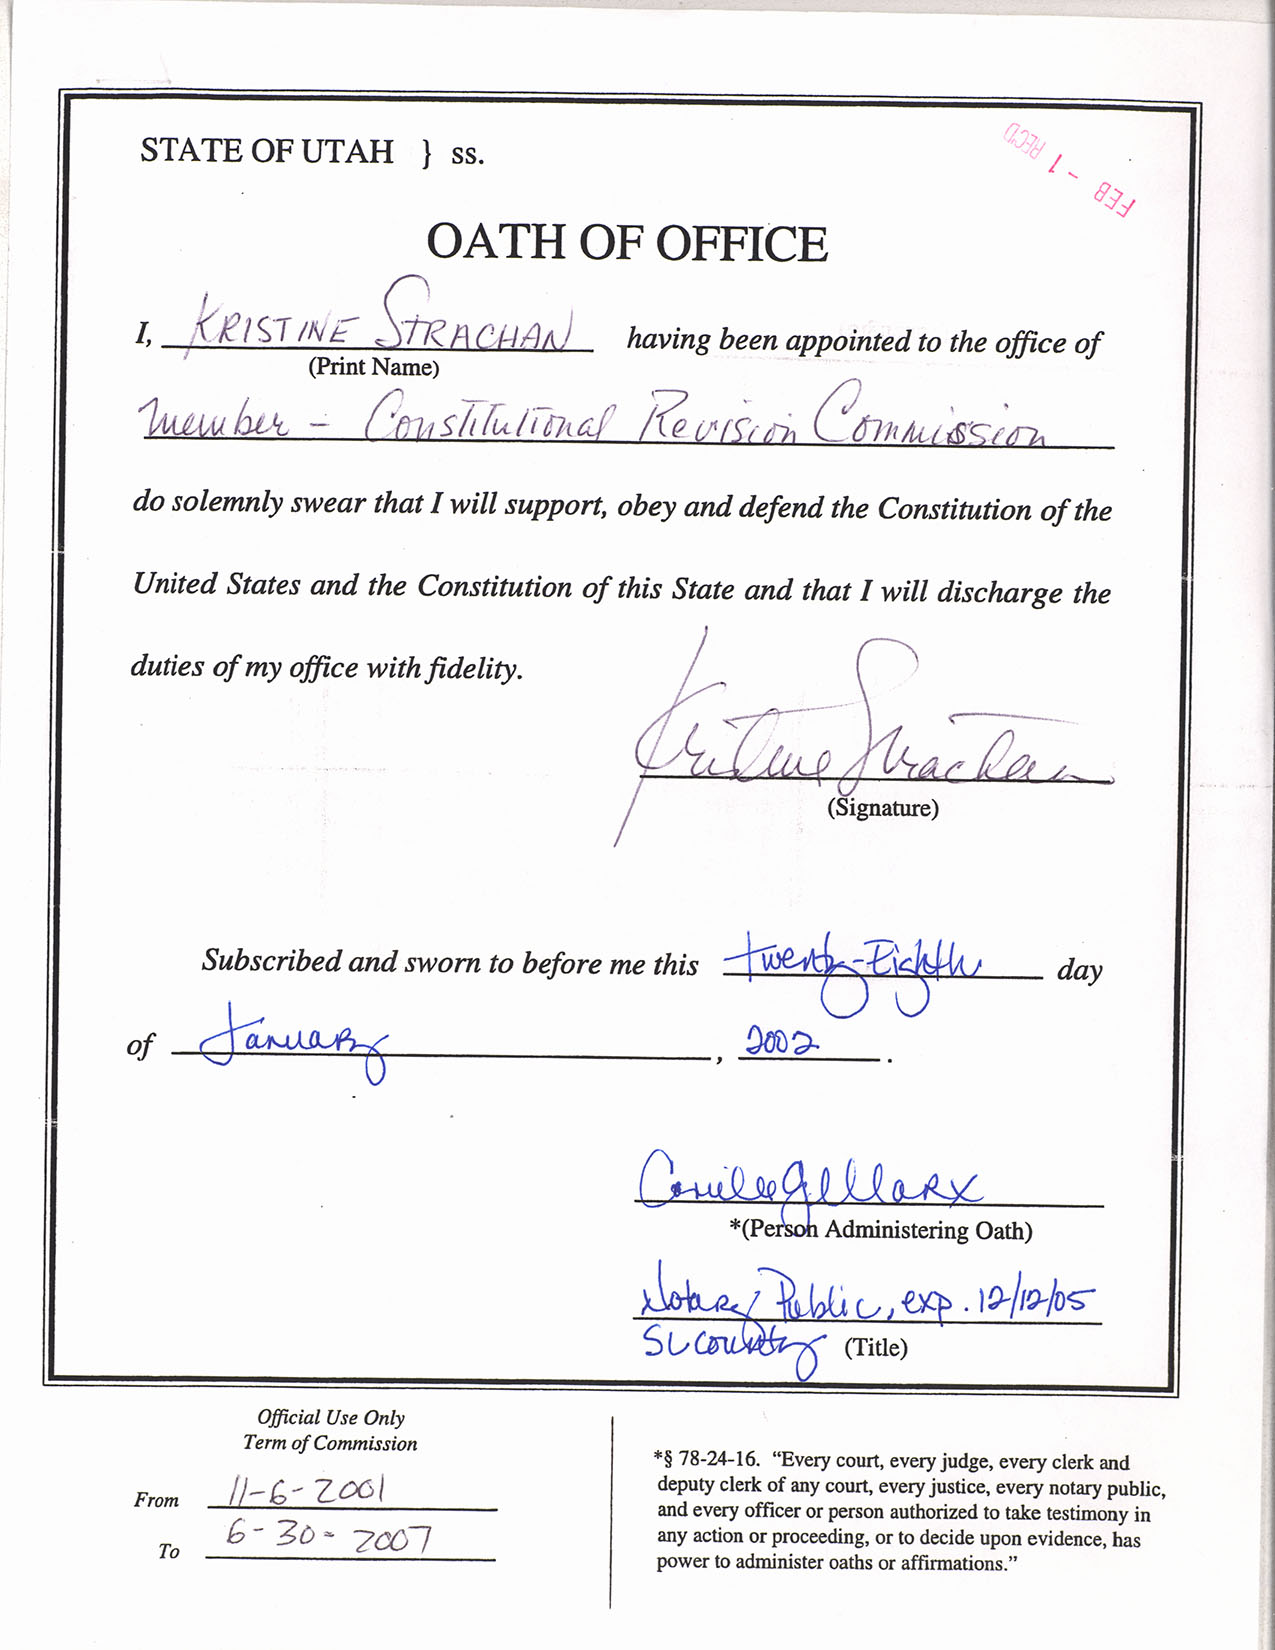 STATE OF UTAH } ss.
FEB - 1 REC'D
OATH OF OFFICE
I, KRISTINE STRACHAN having been appointed to the office of
(Print Name)
Member - Constitutional Revision Commission
do solemnly swear that I will support, obey and defend the Constitution of the
United States and the Constitution of this State and that I will discharge the
duties of my office with fidelity.
Kristine Strachan
(Signature)
Subscribed and sworn to before me this twenty-Eighth day
of January, 2002.
Marx
*(Person Administering Oath)
Notary Public, exp. 12/12/05
SL County (Title)
Official Use Only
Term of Commission
From 11-6-2001
To 6-30-2007
*§ 78-24-16. “Every court, every judge, every clerk and
deputy clerk of any court, every justice, every notary public,
and every officer or person authorized to take testimony in
any action or proceeding, or to decide upon evidence, has
power to administer oaths or affirmations.”